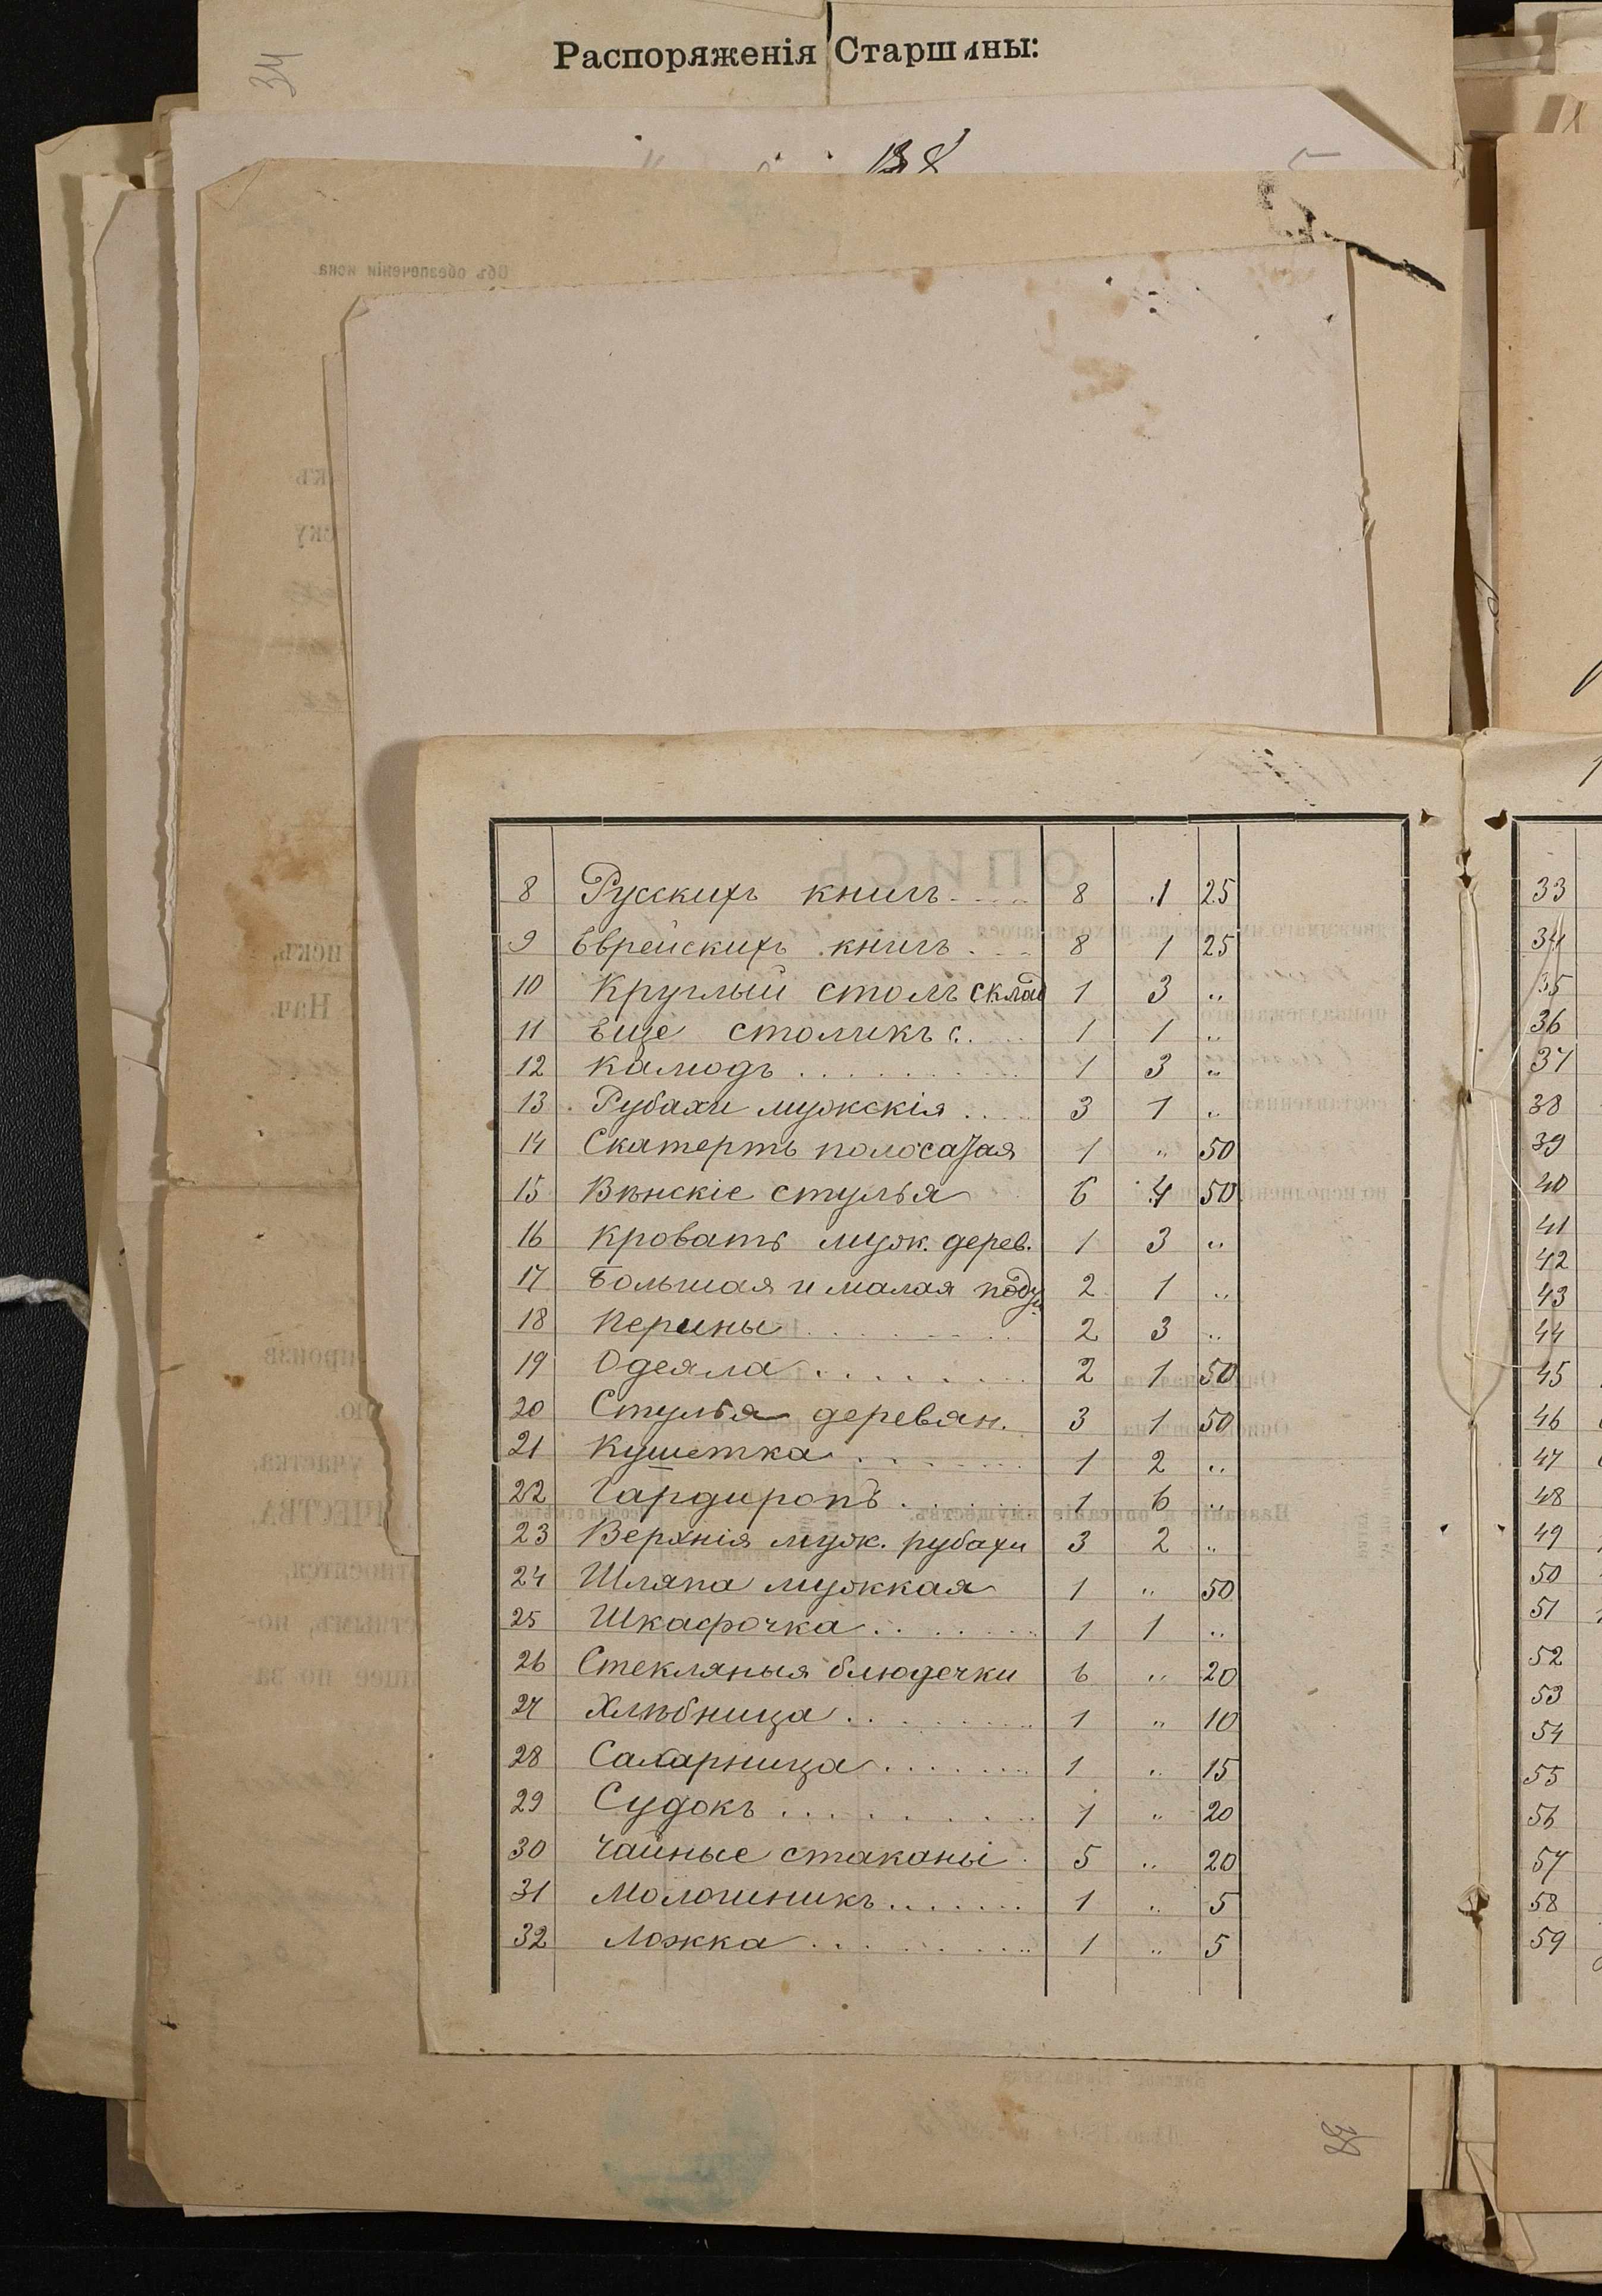 34
Распоряженія Старшины:
138
8 Русскихъ книгъ 8 1 25
9 Еврейскихъ книгъ 8 1 25
10 Круглый столъ склад 1 3 "
11 Еще столикъ с. 1 1 "
12 Камодъ 1 3 "
13 Рубахи мужскія 3 1 "
14 Скатерть полосатая 1 " 50
15 Вѣнскіе стулья 6 4 50
16 Кровать муж. дерев. 1 3 "
17 Большая и малая поду 2 1 "
18 Перины 2 3 "
19 Одеяла 2 1 50
20 Стулья деревян. 3 1 50
21 Кушетка 1 2 "
22 Гардиропъ 1 6 "
23 Верхнія муж. рубахи 3 2 "
24 Шляпа мужкая 1 " 50
25 Шкафочка 1 1 "
26 Стекляныя блюдечки 6 " 20
27 Хлѣбница 1 " 10
28 Сахарница 1 " 15
29 Судокъ 1 " 20
30 Чайные стаканы 5 " 20
31 Молошникъ 1 " 5
32 Ложка 1 " 5
33
34
35
36
37
38
39
40
41
42
43
44
45
46
47
48
49
50
51
52
53
54
55
56
57
58
59